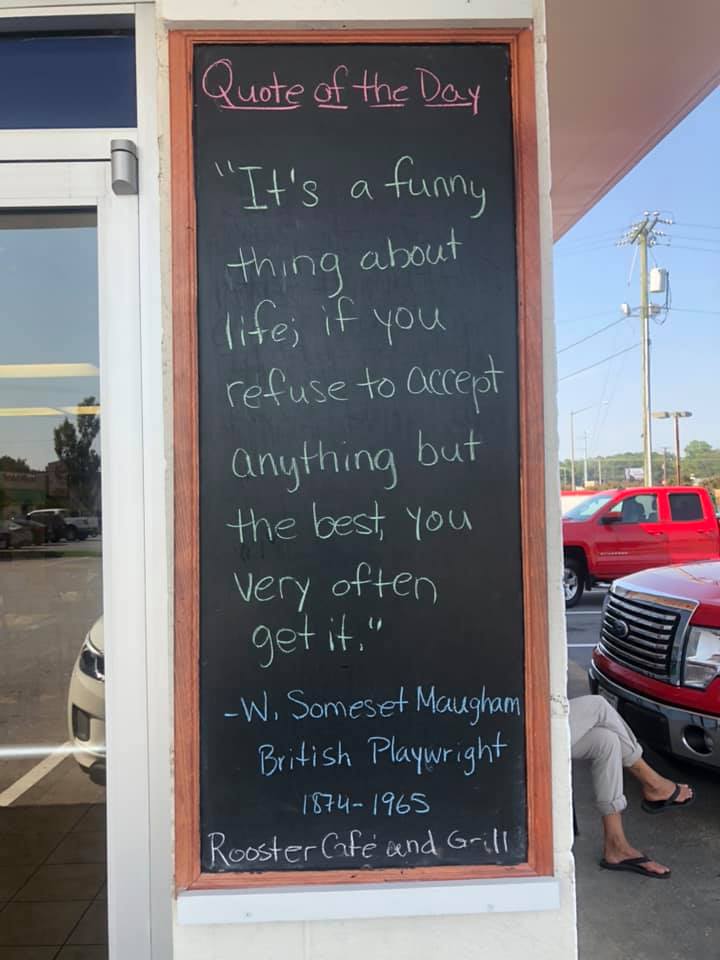 Quote of the Day
"It's a funny
thing about
life; if you
refuse to accept
anything but
the best, you
very often
get it."
-W. Someset Maugham
British Playwright
1874-1965
Rooster Café and Grill